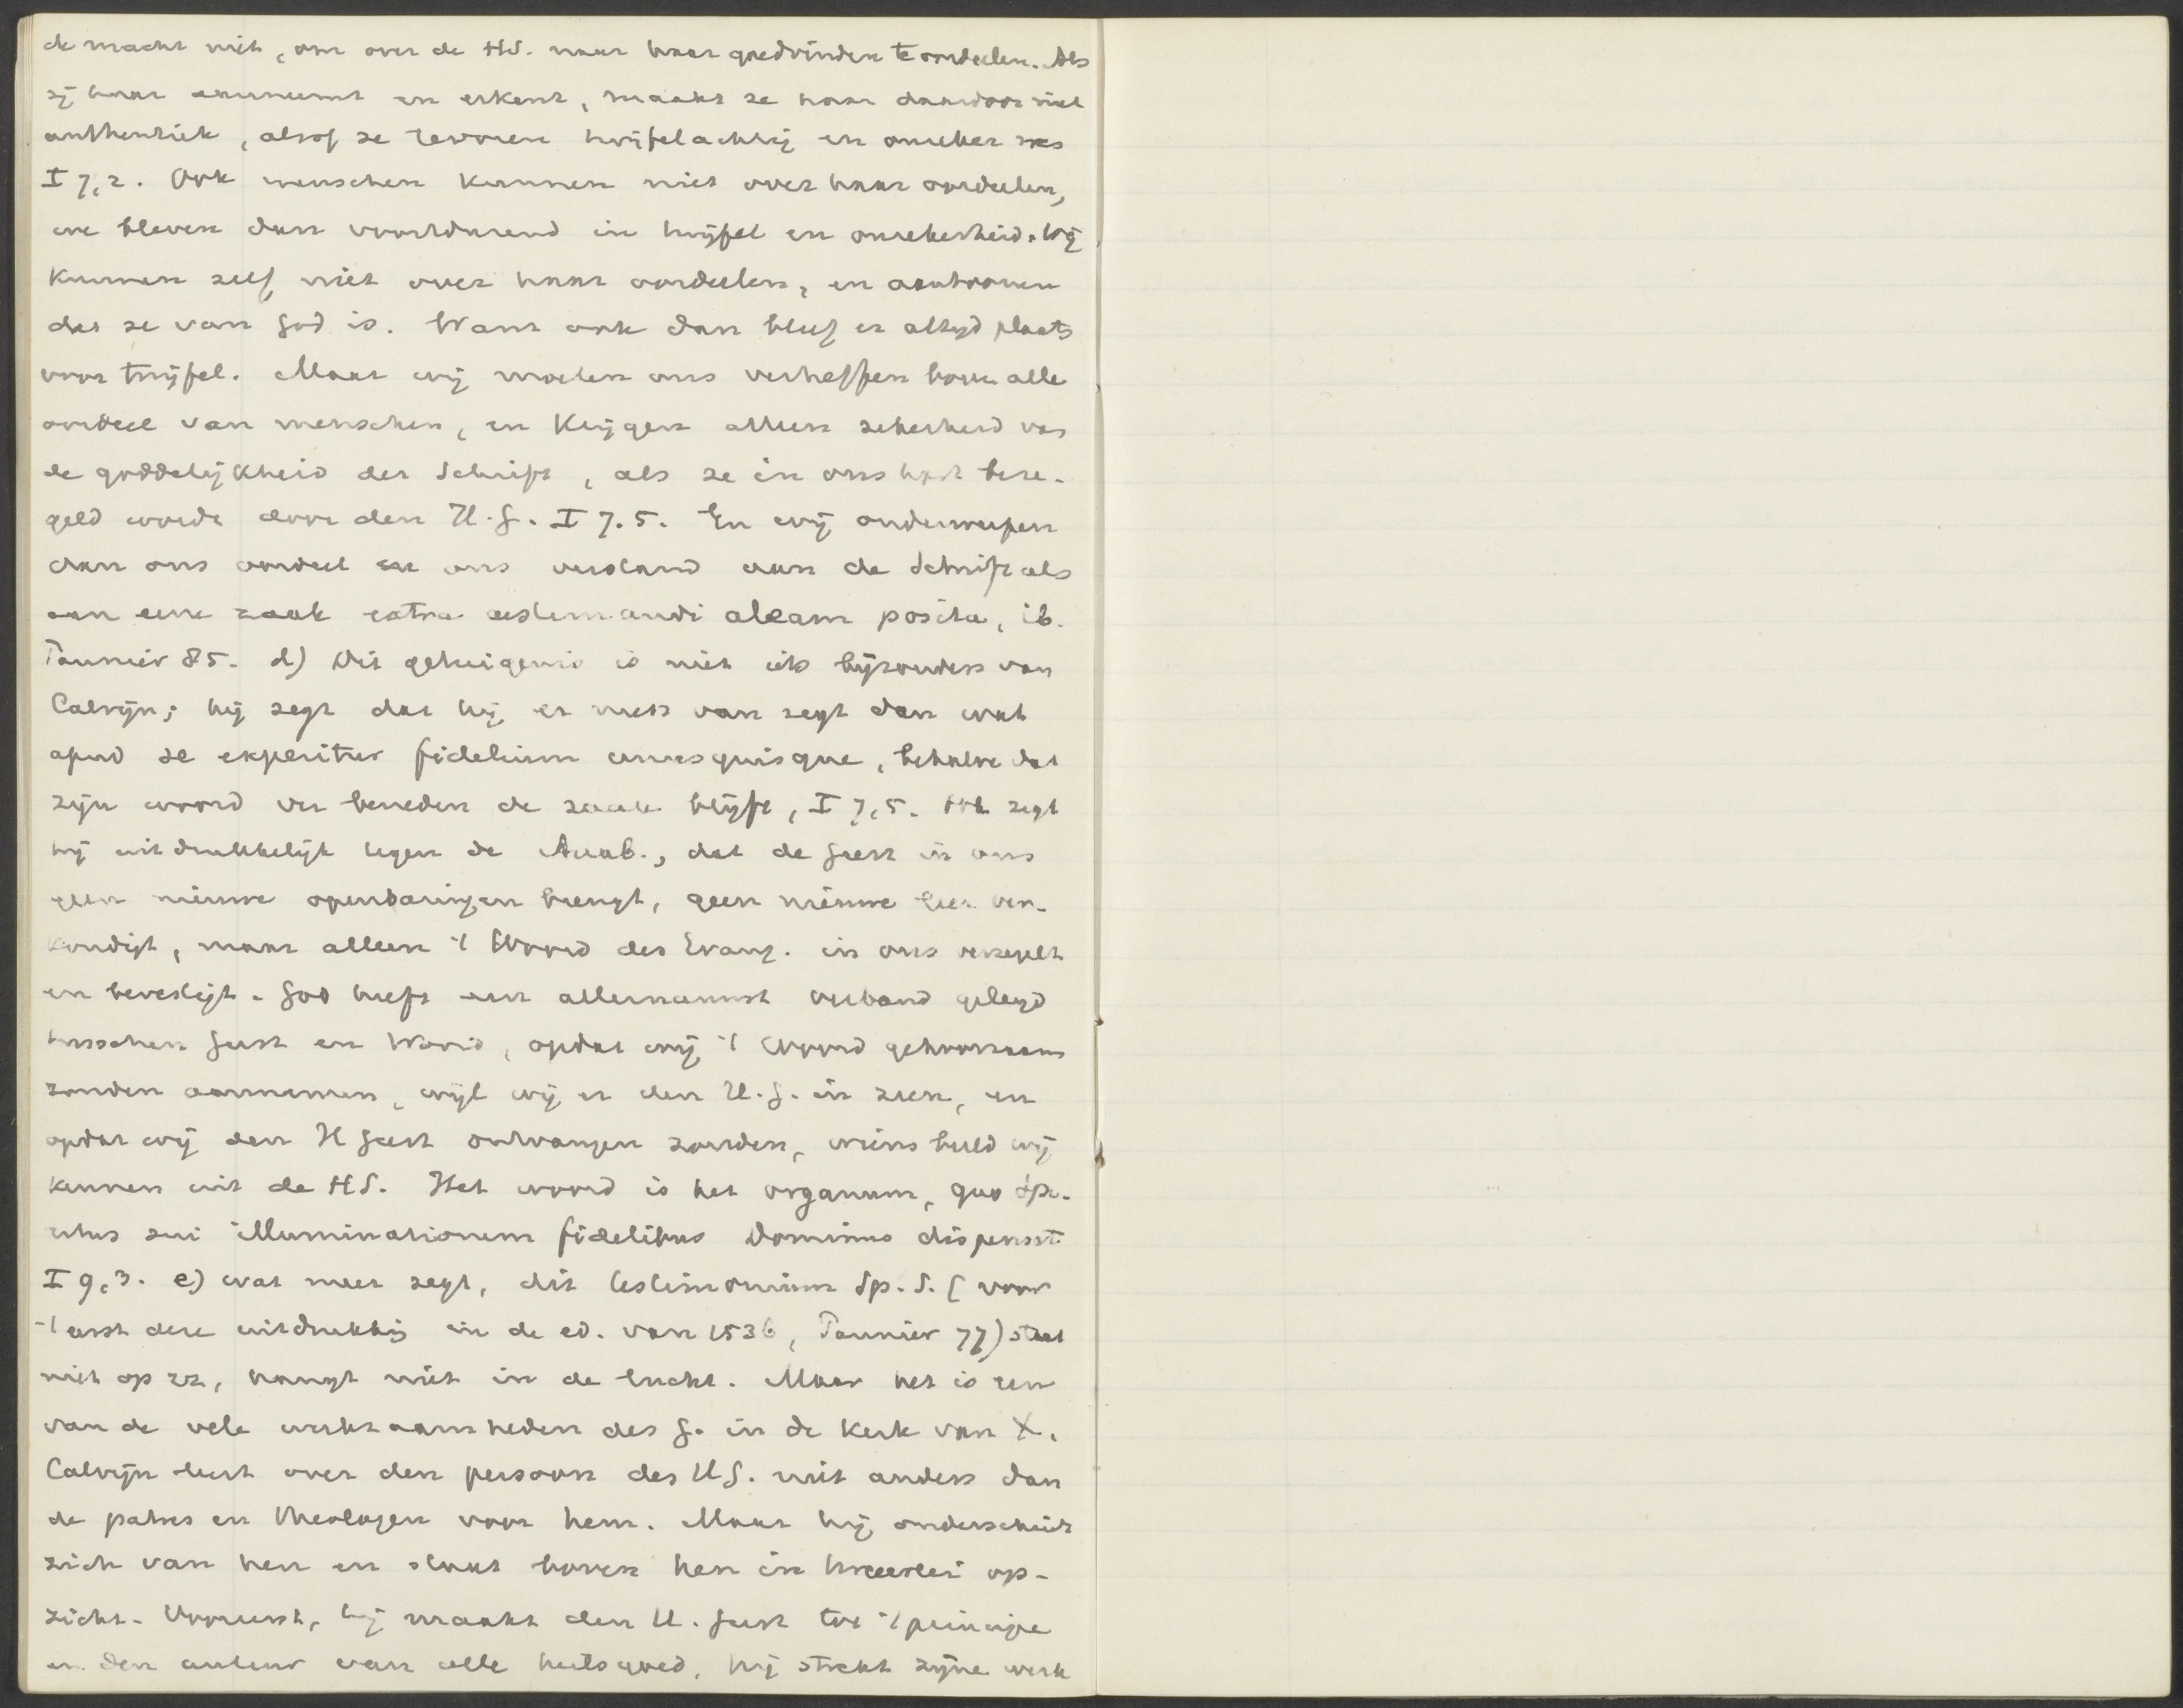 de macht niet, om over de HS. naar haar goedvinden te oordeelen. Als
zij haar aanneemt en erkent, maakt ze haar daardoor niet
authentiek, alsof ze tevoren twijfelachtig en onzeker was
I 7,2. Ook menschen kunnen niet over haar oordeelen,
we bleven dan voortdurend in twijfel en onzekerheid. Wij
kunnen zelf niet over haar oordeelen, en aantoonen
dat ze van God is. Want ook dan bleef er altijd plaats
voor twijfel. Maar wij moeten ons verheffen boven alle
oordeel van menschen, en krijgen alleen zekerheid van
de goddelijkheid der Schrift, als ze in ons hart beze-
geld wordt door den H.G. I 7.5. En wij onderwerpen
dan ons oordeel en ons verstand aan de Schrift als
aan eene zaak extra aestimandi aleam posita, ib.
Pannier 85. d) Dit getuigenis is niet iets bijzonders van
Calvijn; hij zegt dat hij er niets van zegt dan wat
apud se experitur fidelium unusquisque, behalve dat
zijn woord ver beneden de zaak blijft, I 7,5. Ook zegt
hij uitdrukkelijk tegen de Anab., dat de Geest in ons
geen nieuwe openbaringen brengt, geen nieuwe leer ver-
kondigt, maar alleen 't Woord des Evang. in ons verzegelt
en bevestigt. God heeft een allernauwst verband gelegd
tusschen Geest en Woord, opdat wij 't Woord gehoorzaam
zouden aannemen, wijl wij er den H.G. in zien, en
opdat wij den H Geest ontvangen zouden, wiens beeld wij
kennen uit de HS. Het woord is het organum, quo Spi-
ritus sui illuminationem fidelibus Dominus dispensat
I 9,3. e) wat meer zegt, dit testimonium Sp. S. (voor
't eerst deze uitdrukking in de ed. van 1536, Pannier 77) staat
niet op zz, hangt niet in de lucht. Maar het is een
van de vele werkzaamheden des G. in de Kerk van X.
Calvijn leert over den persoon des HG. niet anders dan
de patres en theologen voor hem. Maar hij onderscheidt
zich van hen en staat boven hen in tweeërlei op-
zicht. Vooreerst, hij maakt den H. Geest tot 't principe
en den auteur van alle heilsgoed, hij strekt zijne werk